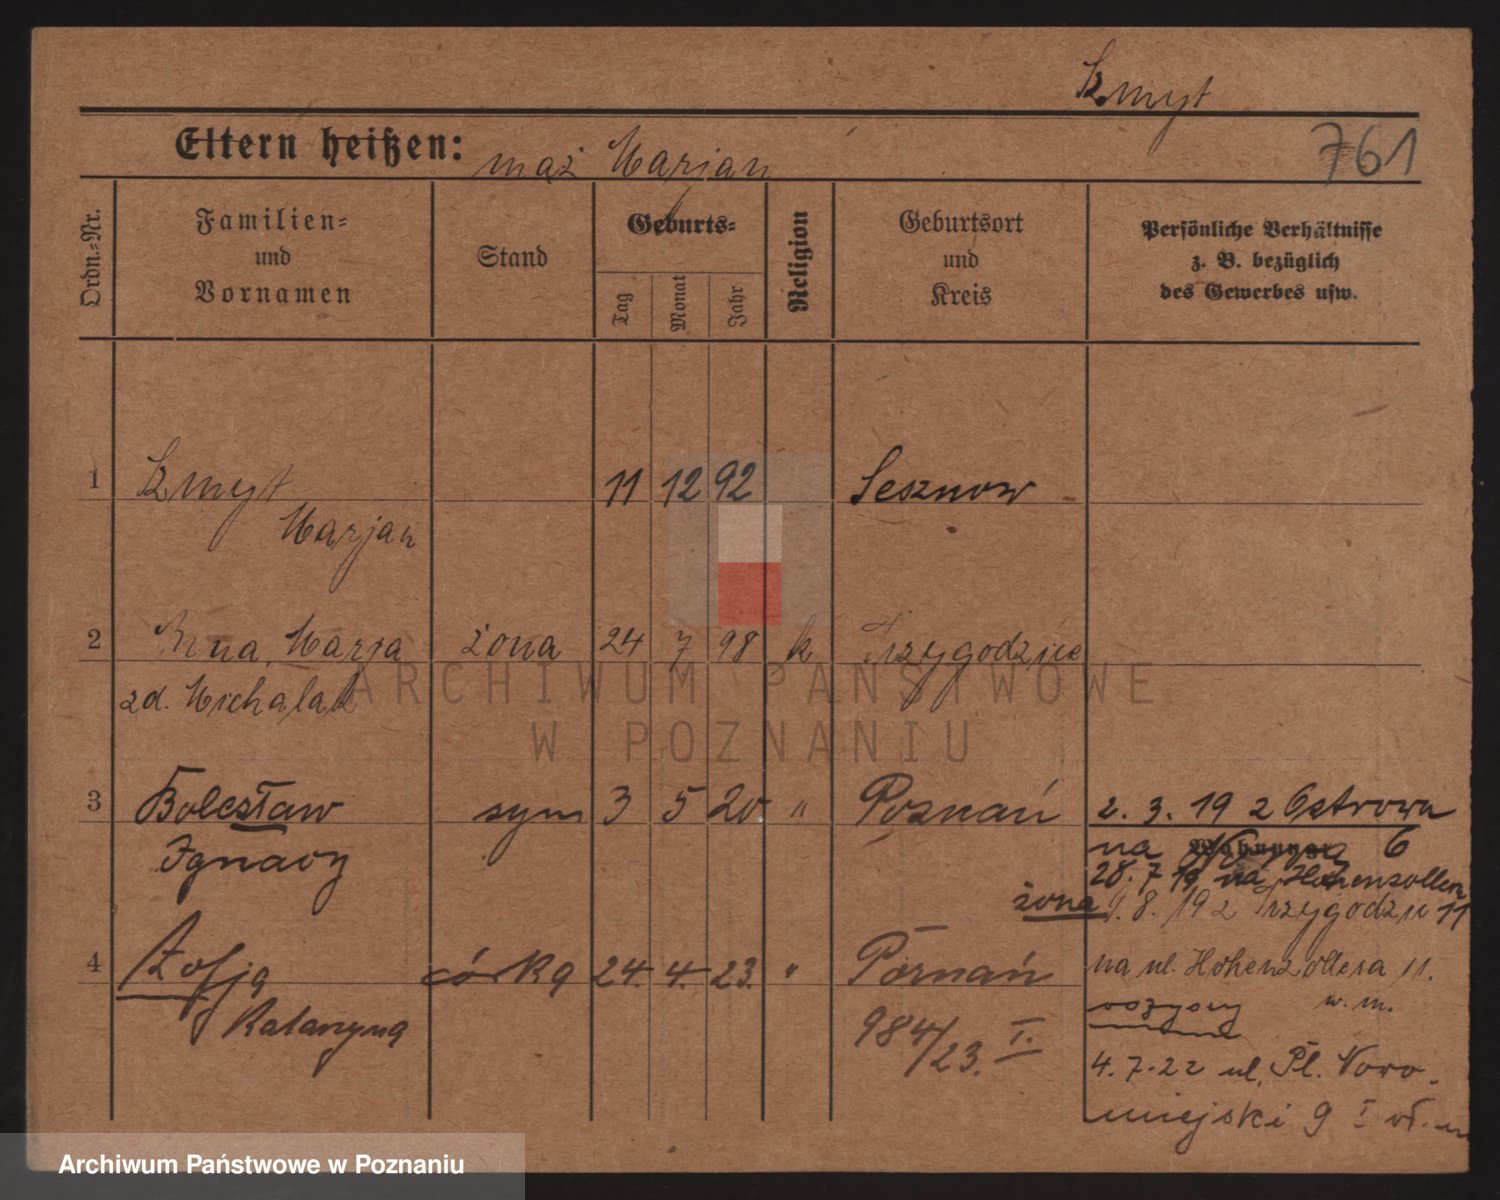 Szmyt
761
Eltern heißen: mąż Marjan
Ordn.-Nr.
Familien-
und
Vornamen
Stand
Geburts-
Tag
Monat
Jahr
Religion
Geburtsort
und
Kreis
Persönliche Verhältnisse
z. B. bezüglich
des Gewerbes usw.
1 Szmyt 11 12 92
Marjan
2 Anna, Marja żona 24 7 98 k Przygodzice
zd. Michalak
3 Bolesław syn 3 5 20 " Poznań
Ignacy
4 Zofja córka 24. 4. 23. " Poznań
Katarzyna
984/23. I.
2. 3. 19 z Ostrowa
na 6
Wohnung:
28. 7 19 na Hohenzollern
żona 9. 8. 19 z Przygodzic 11
na ul. Hohenzollera 11.
wszyscy w. m.
4. 7. 22 ul. Pl. Nowo-
miejski 9 I
ARCHIWUM PAŃSTWOWE
W POZNANIU
Archiwum Państwowe w Poznaniu